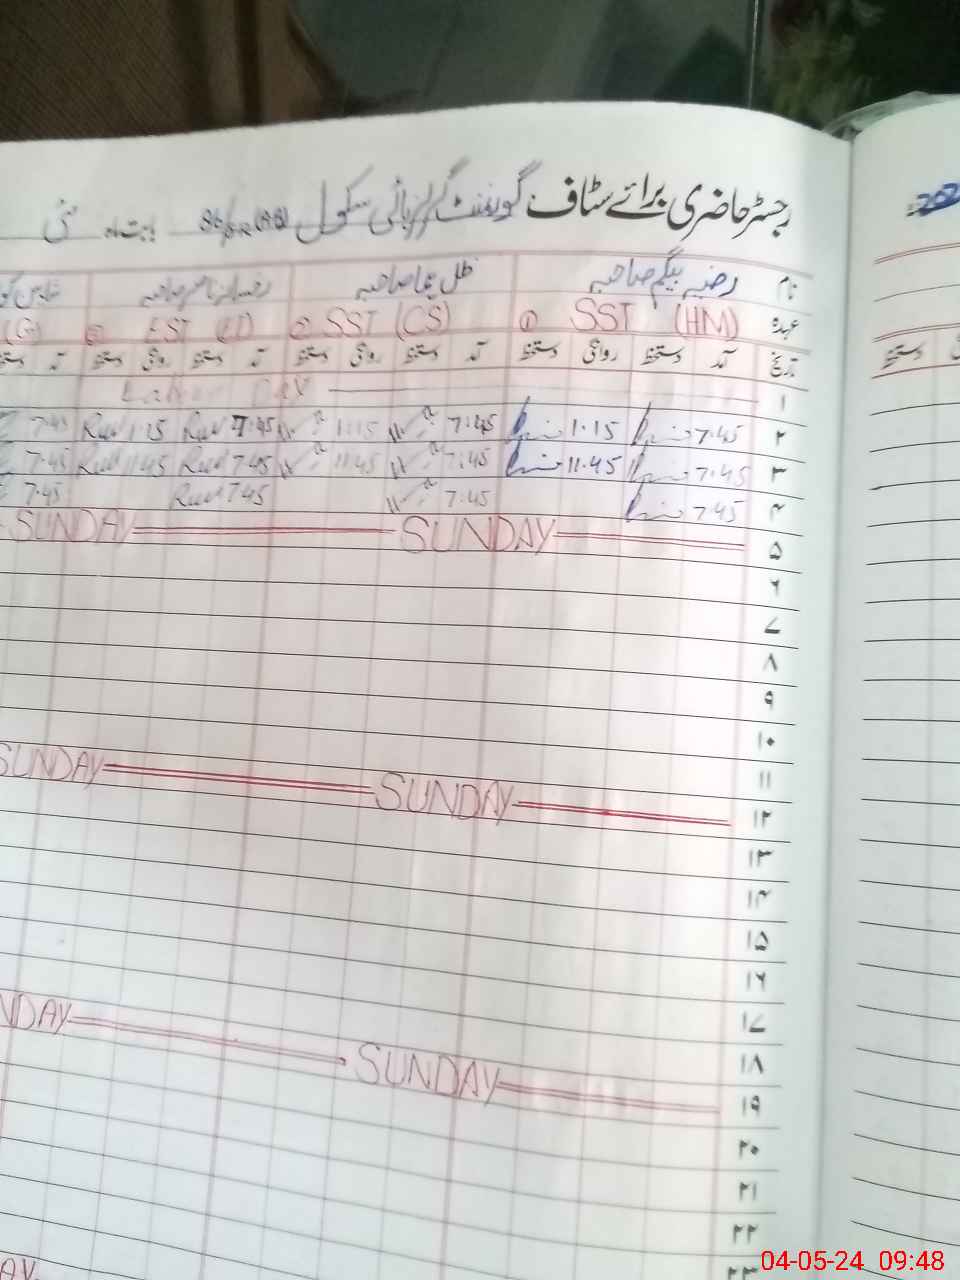 رجسٹر حاضری برائے سٹاف گورنمنٹ گرلز ہائی سکول بابت ماہ مئی
نام رضیہ بیگم صاحبہ ظل ہما صاحبہ صاحبہ
عہدہ SST (HM) ① SST (CS) ② EST
تاریخ آمد دستخط روانگی دستخط آمد دستخط روانگی دستخط آمد دستخط روانگی دستخط آمد
۱ Labour Day
۲ 7:45 1:15 7:45 1:15 7:45 1:15 7:45
۳ 7:45 11:45 7:45 11:45 7:45 11:45 7:45
۴ 7:45 7:45 7:45 7:45
۵ SUNDAY SUNDAY
۶
۷
۸
۹
۱۰
۱۱
۱۲ SUNDAY SUNDAY
۱۳
۱۴
۱۵
۱۶
۱۷
۱۸
۱۹ SUNDAY NDAY
۲۰
۲۱
۲۲
۲۳
دستخط
04-05-24 09:48